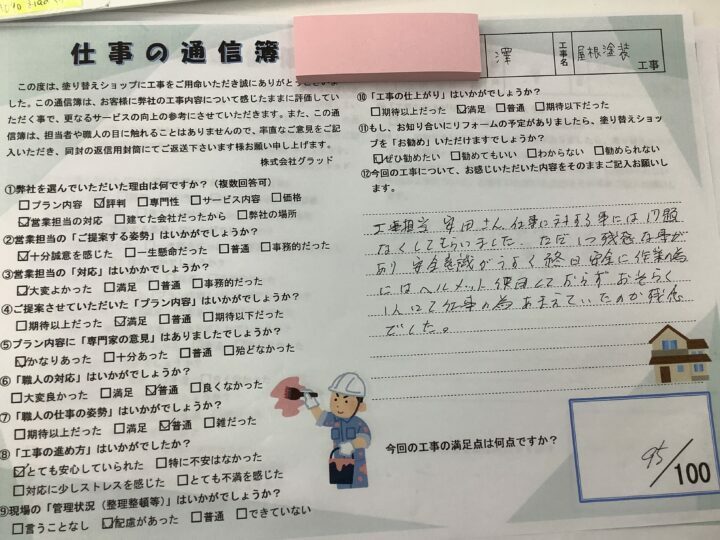 仕事の通信簿
澤
工事名
屋根塗装
工事
この度は、塗り替えショップに工事をご用命いただき誠にありがとうございま
した。この通信簿は、お客様に弊社の工事内容について感じたままに評価してい
ただく事で、更なるサービスの向上の参考にさせていただきます。また、この通
信簿は、担当者や職人の目に触れることはありませんので、率直なご意見をご記
入いただき、同封の返信用封筒にてご返送下さいます様お願い申し上げます。
株式会社グラッド
①弊社を選んでいただいた理由は何ですか?(複数回答可)
□プラン内容 ☑評判 □専門性 □サービス内容 □価格
☑営業担当の対応 □建てた会社だったから □弊社の場所
②営業担当の「ご提案する姿勢」はいかがでしたか?
☑十分誠意を感じた □一生懸命だった □普通 □事務的だった
③営業担当の「対応」はいかがでしょうか?
☑大変よかった □満足 □普通 □事務的だった
④ご提案させていただいた「プラン内容」はいかがでしょうか?
□期待以上だった ☑満足 □普通 □期待以下だった
⑤プラン内容に「専門家の意見」はありましたでしょうか?
☑かなりあった □十分あった □普通 □殆どなかった
⑥「職人の対応」はいかがでしょうか?
□大変良かった □満足 ☑普通 □良くなかった
⑦「職人の仕事の姿勢」はいかがでしょうか?
□期待以上だった □満足 ☑普通 □雑だった
⑧「工事の進め方」はいかがでしたか?
☑とても安心していられた □特に不安はなかった
□対応に少しストレスを感じた □とても不満を感じた
⑨現場の「管理状況(整理整頓等)」はいかがでしょうか?
□言うことなし ☑配慮があった □普通 □できていない
⑩「工事の仕上がり」はいかがでしょうか?
□期待以上だった ☑満足 □普通 □期待以下だった
⑪もし、お知り合いにリフォームの予定がありましたら、塗り替えショッ
プを「お勧め」いただけますでしょうか?
☑ぜひ勧めたい □勧めてもいい □わからない □勧められない
⑫今回の工事について、お感じいただいた内容をそのままご記入お願いし
ます。
工事担当 安田さん 仕事に対する事には
なくしてもらいました。ただ1つ残念な事が
あり 安全意識がうすく 終日安全に作業の為
にはヘルメット使用しておらず おそらく
1人にて仕事の為 あまえていたのが残念
でした。
今回の工事の満足点は何点ですか?
95/100